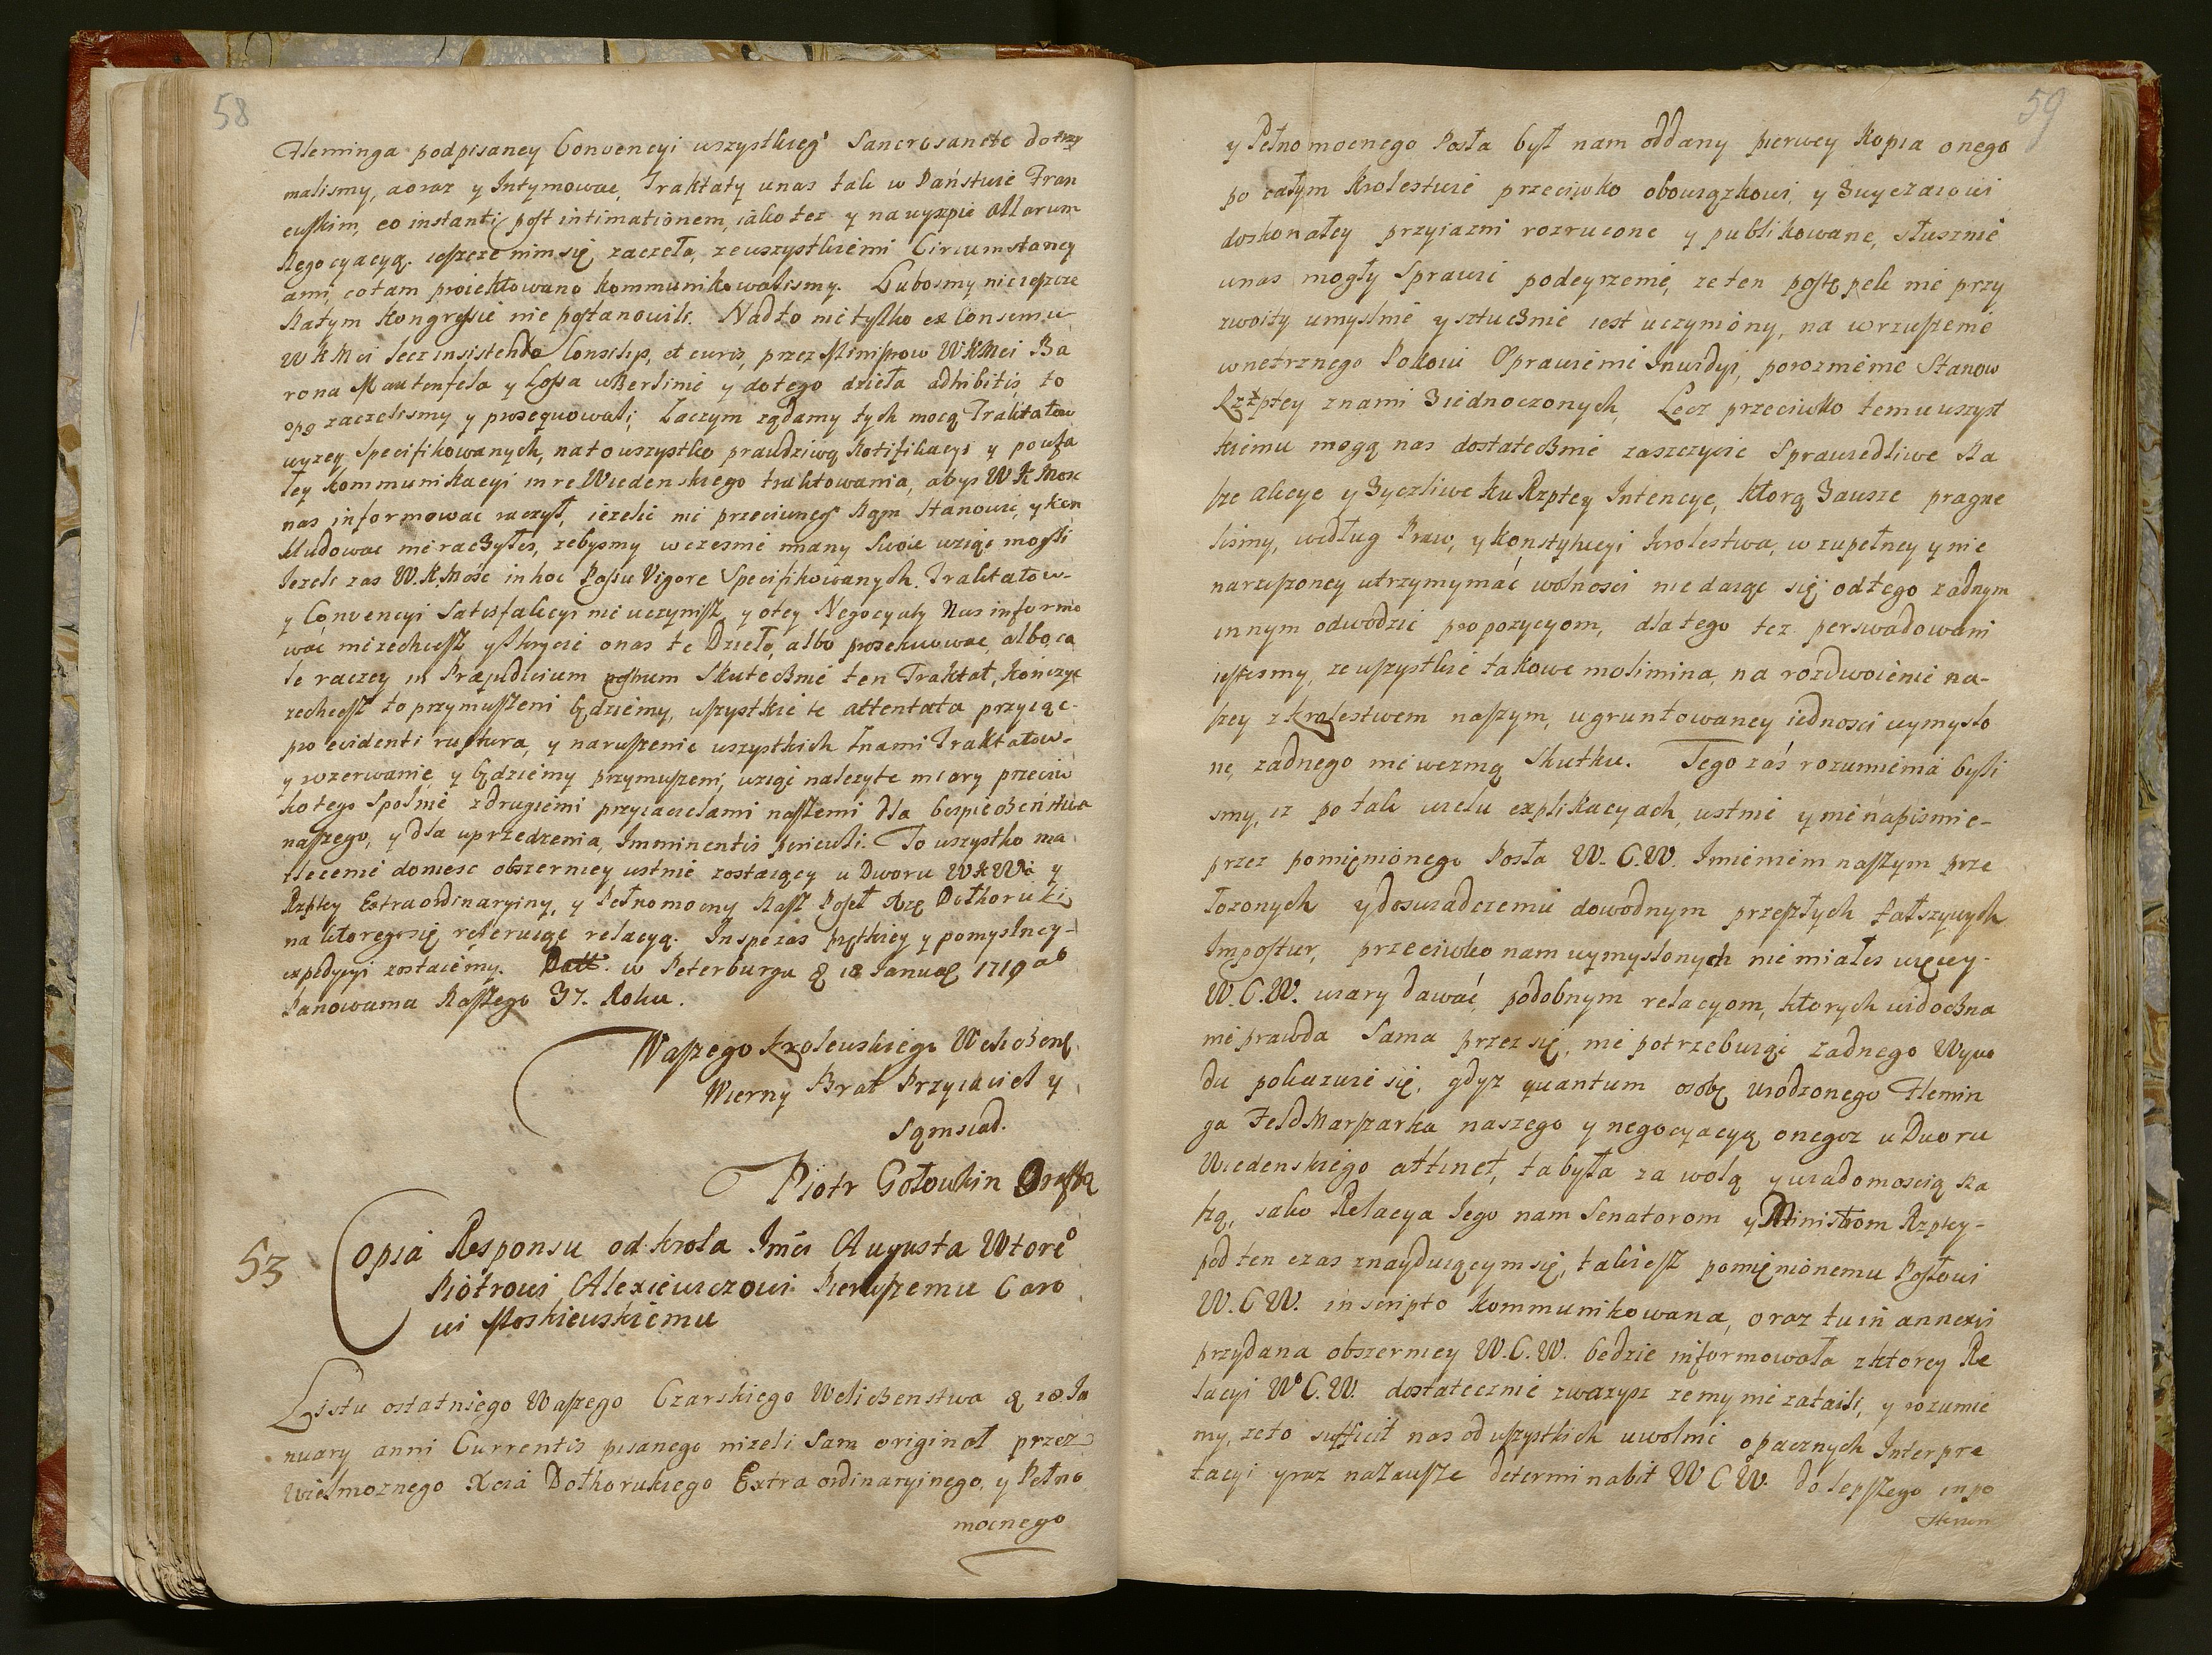 58
Fleminga podpisaney Convencyi wszystkieg° Sancrosancte dotrzy
malismy, aoraz y Intymowac, Traktaty unas tak w Państwie Fran
cuskim, eo instanti post intimationem, iako tez y na wyspie Allarum
Negocyacyą. ieszcze nim się zaczeła, ze wszystkiemi Circumstancy
ami, co tam proiektowano kommunikowalismy. Lubosmy nic ieszcze
Natym Kongressie nie postanowili. Nadto nie tylko ex Consensu
W K Mci lecz insistendo Consilys, et curis, przez Ministrow WKMci Ba
rona Mantenfela y Lossa w Berlinie y dotego dzieła adhibitis, to
opg zaczelismy y prosequowali; Zaczym ządamy tych mocą Traktatow
wyzey Specifikowanych, nato wszystko prawdziwą Notifikacyi y poufa
łey Kommunikacyi in re Wiedenskiego traktowania, abys W K Mosc
nas informowac raczył, iezelić nic przeciwneg° Nam Stanowić, y kon
kludowac nie raczyłes, zebysmy wczesnie miany Swoie wziąc mogli
Iezeli zas W.K.Mość in hoc Passu Vigore Specifikowanych Traktatow
y Convencyi Satisfakcyi nie uczynisz, y otey Negocyaty Nas informo
wać niezechcesz y skrycie onas te Dzieło, albo prosekwowac, albo, ca
le raczey in Præjudicium nostrum Skutecznie ten Traktat, konczyc
zechcesz to przymuszeni będziemy, wszystkie te attentata przyiąc
pro evidenti ruptura, y naruszenie wszystkich z nami Traktatow
y rozerwanie, y będziemy przymuszeni, wziąc nalezyte miary przeciw
ko tego Spolnie z drugiemi przyiacielami naszemi dla bespieczeństwa
naszego, y dla uprzedzenia, Imminentis periculi. To wszystko ma
zlecenie doniesc obszerniey ustnie zostaiący u Dworu WKMći y
Rzptey Extraordinaryiny, y Pełnomocny Nasz Poseł Xze Dołhoruki
na ktoregosię referuiąc relacyą. In spe zas prętkiey y pomyslney
expedycyi zostaiemy. Datt. w Peterburgu d 18 Januar 1719 ab
Panowania Naszego 37. Roku.
Waszego Krolewskiego Wieliczens
Wierny Brat Przyiaciel y
Sąmsiad.
Piotr Gołowkin Graffia
53 Copia Responsu od krola Imći Augusta Wtore°
Piotrowi Alexiewiczowi Pierwszemu Caro
wi Moskiewskiemu
Listu ostatniego Waszego Czarskiego Wieliczenstwa d 18 Ja
nuary anni Currentis pisanego nizeli Sam original przez
Wielmoznego Xcia Dołhorukiego Extra ordinaryinego, y Pełno
mocnego
59
y Pełno mocnego Posła był nam oddany pierwey Kopia onego
po całym Krolestwie przeciwko obowiązkowi, y zwyczaiowi
doskonałey przyiazni rozrucone y publikowane, słusznie
unas mogły Sprawić podeyrzenie, ze ten postępek nie przy
zwoity umyslnie y sztucznie iest uczyniony, na wzruszenie
wnetrznego Pokoiu Sprawienie Inwidyi, porozmienie Stanow
Rzptey znami ziednoczonych, Lecz przeciwko temu wszyst
kiemu mogą nas dostatecznie zaszczycić Sprawiedliwe Na
sze akcye y zyczliwe ku Rzptey Intencye, ktorą zawsze pragne
lismy, według Praw, y konstytucyi krolestwa, w zupełney y nie
naruszoney utrzymymać wolnosci nie daiąc się od tego zadnym
innym odwodzić propozycyom, dla tego tez perswadowani
iestesmy, ze wszystkie takowe molimina, na rozdwoienie na-
szey z krolestwem naszym, ugruntowaney iednosci wymyslo
ne, zadnego nie wezmą Skutku. Tego zaś rozumienia byli
smy, iz po tak wielu explikacyach, ustnie y nie napismie-
przez pomięnionego Posła W. C. W. Imieniem naszym prze
łozonych y doswiadczeniu dowodnym przeszłych fałszywych
Impostur, przeciwko nam wymyslonych nie miałes więcey
W. C. W. wiary dawać, podobnym relacyom, ktorych widoczna
nieprawda Sama przez się, nie potrzebuiąc zadnego Wywo
du pokazuie się, gdyz quantum osobę urodzonego Flemin
ga Feld Marszarka naszego y negocyacyą onegoz u Dworu
Wiedenskiego attinet, ta była za wolą y wiadomoscią Na
szą, iako Relacya Iego nam Senatorom y Ministrom Rzptey
pod ten czas znayduiącym się, takiesz pomięnionemu Posłowi
W. C W. in scripto kommunikowana, oraz tu in annexis
przydana obszerniey W. C. W. bedzie informowała z ktorey Re
lacyi W° C. W. dostatecznie zwazysz ze my nie zataili, y rozumie
my, ze to sufficit nas od wszystkich uwolnić opacznych Interpre
tacyi y raz nazawsze determinabit W C W. do lepszego in po